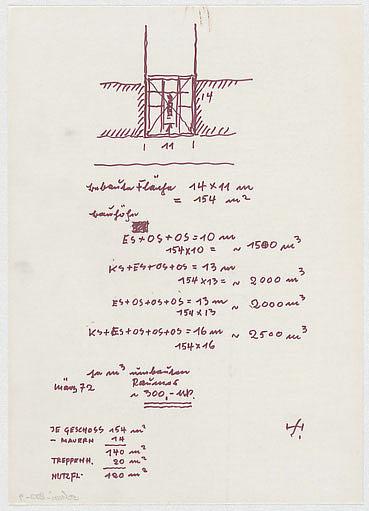 14
11
bebaute Fläche 14 x 11 m
= 154 m²
bauhöhe
ES+OS+OS = 10 m
154x10 = ~ 1500 m³
KS+ES+OS+OS = 13 m
154x13 = ~ 2000 m³
ES+OS+OS+OS = 13 m ~ 2000 m³
154x13
KS+ES+OS+OS+OS = 16 m ~ 2500 m³
154x16
m³ umbauten
März 72 Raumes
~ 300,-
JE GESCHOSS 154 m²
- MAUERN 14
140 m²
TREPPENH. 20 m²
NUTZFL. 120 m²